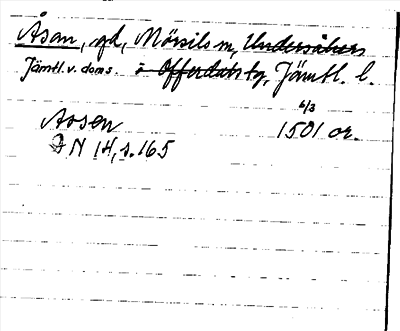 Åsan, gd, Mörsils sn, Undersåkers
Jämtl. v. doms. o Offerdals tg, Jämtl. l.
6/3
Aosen 1501 or.
JN 14, s. 165